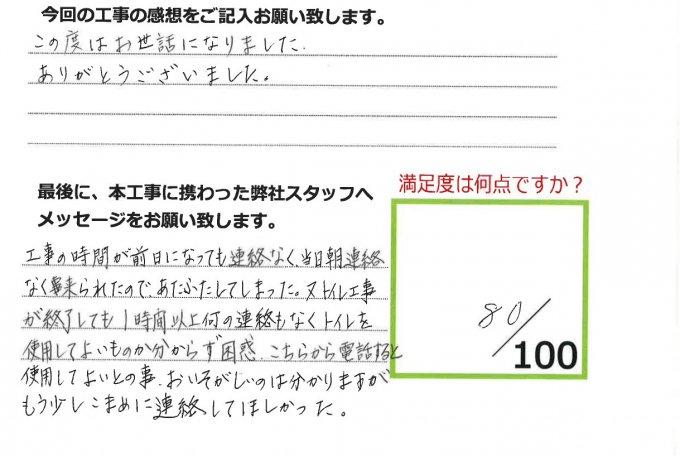 今回の工事の感想をご記入お願い致します。
この度はお世話になりました.
ありがとうございました。
最後に、本工事に携わった弊社スタッフへ
メッセージをお願い致します。
満足度は何点ですか？
工事の時間が前日になっても連絡なく、当日朝連絡
なく来られたので、あたふたしてしまった。又トイレ工事
が終了しても1時間以上何の連絡もなくトイレを
使用してよいものか分からず困惑. こちらから電話すると
使用してよいとの事. おいそがしいのは分かりますが
もう少しこまめに連絡してほしかった。
80/100